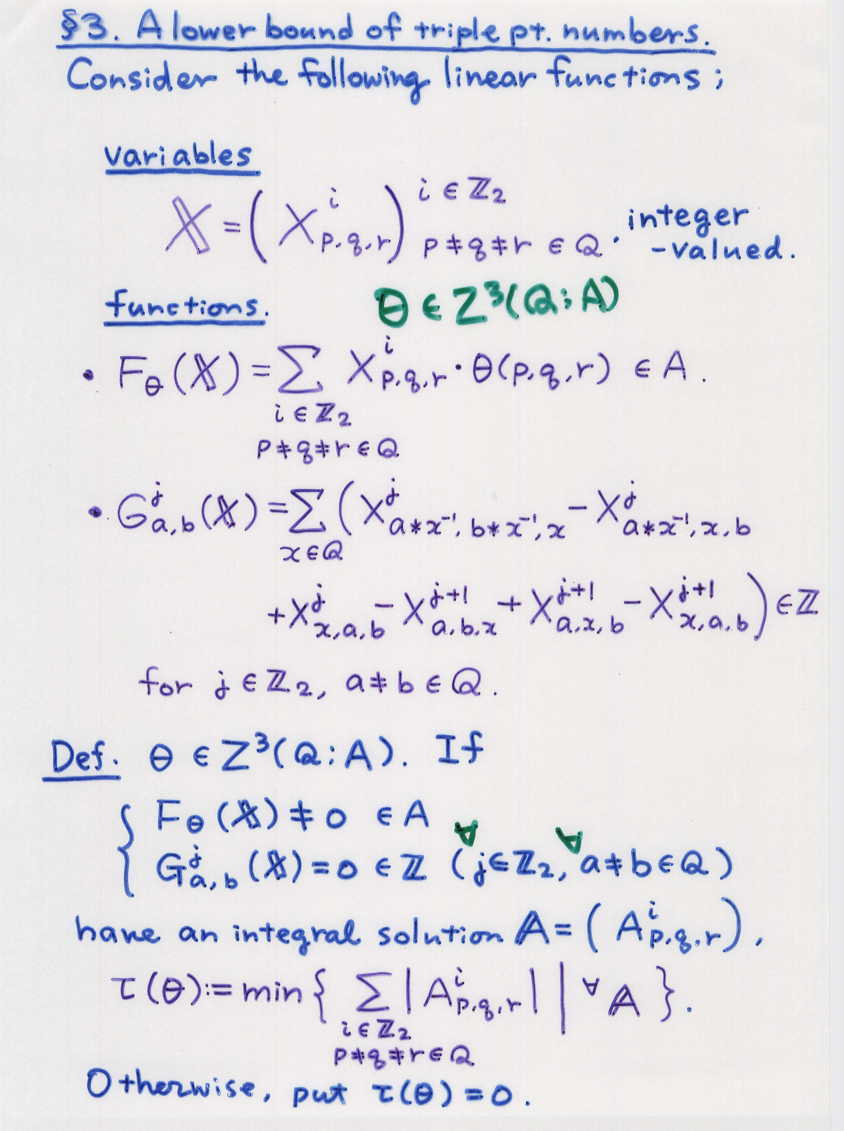 §3. A lower bound of triple pt. numbers.
Consider the following linear functions ;
variables
𝕏 = ( X^i_{p,q,r} )^{i ∈ ℤ_2}_{p≠q≠r ∈ Q} . integer
-valued.
functions. θ ∈ Z^3(Q;A)
• F_θ(𝕏) = Σ_{i∈ℤ_2, p≠q≠r∈Q} X^i_{p,q,r} · θ(p,q,r) ∈ A .
• G^j_{a,b}(𝕏) = Σ_{x∈Q} ( X^j_{a*x^{-1}, b*x^{-1}, x} - X^j_{a*x^{-1}, x, b}
+ X^j_{x,a,b} - X^{j+1}_{a,b,x} + X^{j+1}_{a,x,b} - X^{j+1}_{x,a,b} ) ∈ ℤ
for j ∈ ℤ_2, a≠b ∈ Q .
Def. θ ∈ Z^3(Q;A). If
{ F_θ(𝕏) ≠ 0 ∈ A
G^j_{a,b}(𝕏) = 0 ∈ ℤ (∀j∈ℤ_2, ∀a≠b∈Q)
have an integral solution 𝔸 = ( A^i_{p,q,r} ),
τ(θ) := min { Σ_{i∈ℤ_2, p≠q≠r∈Q} |A^i_{p,q,r}| | ∀𝔸 }.
Otherwise, put τ(θ) = 0 .